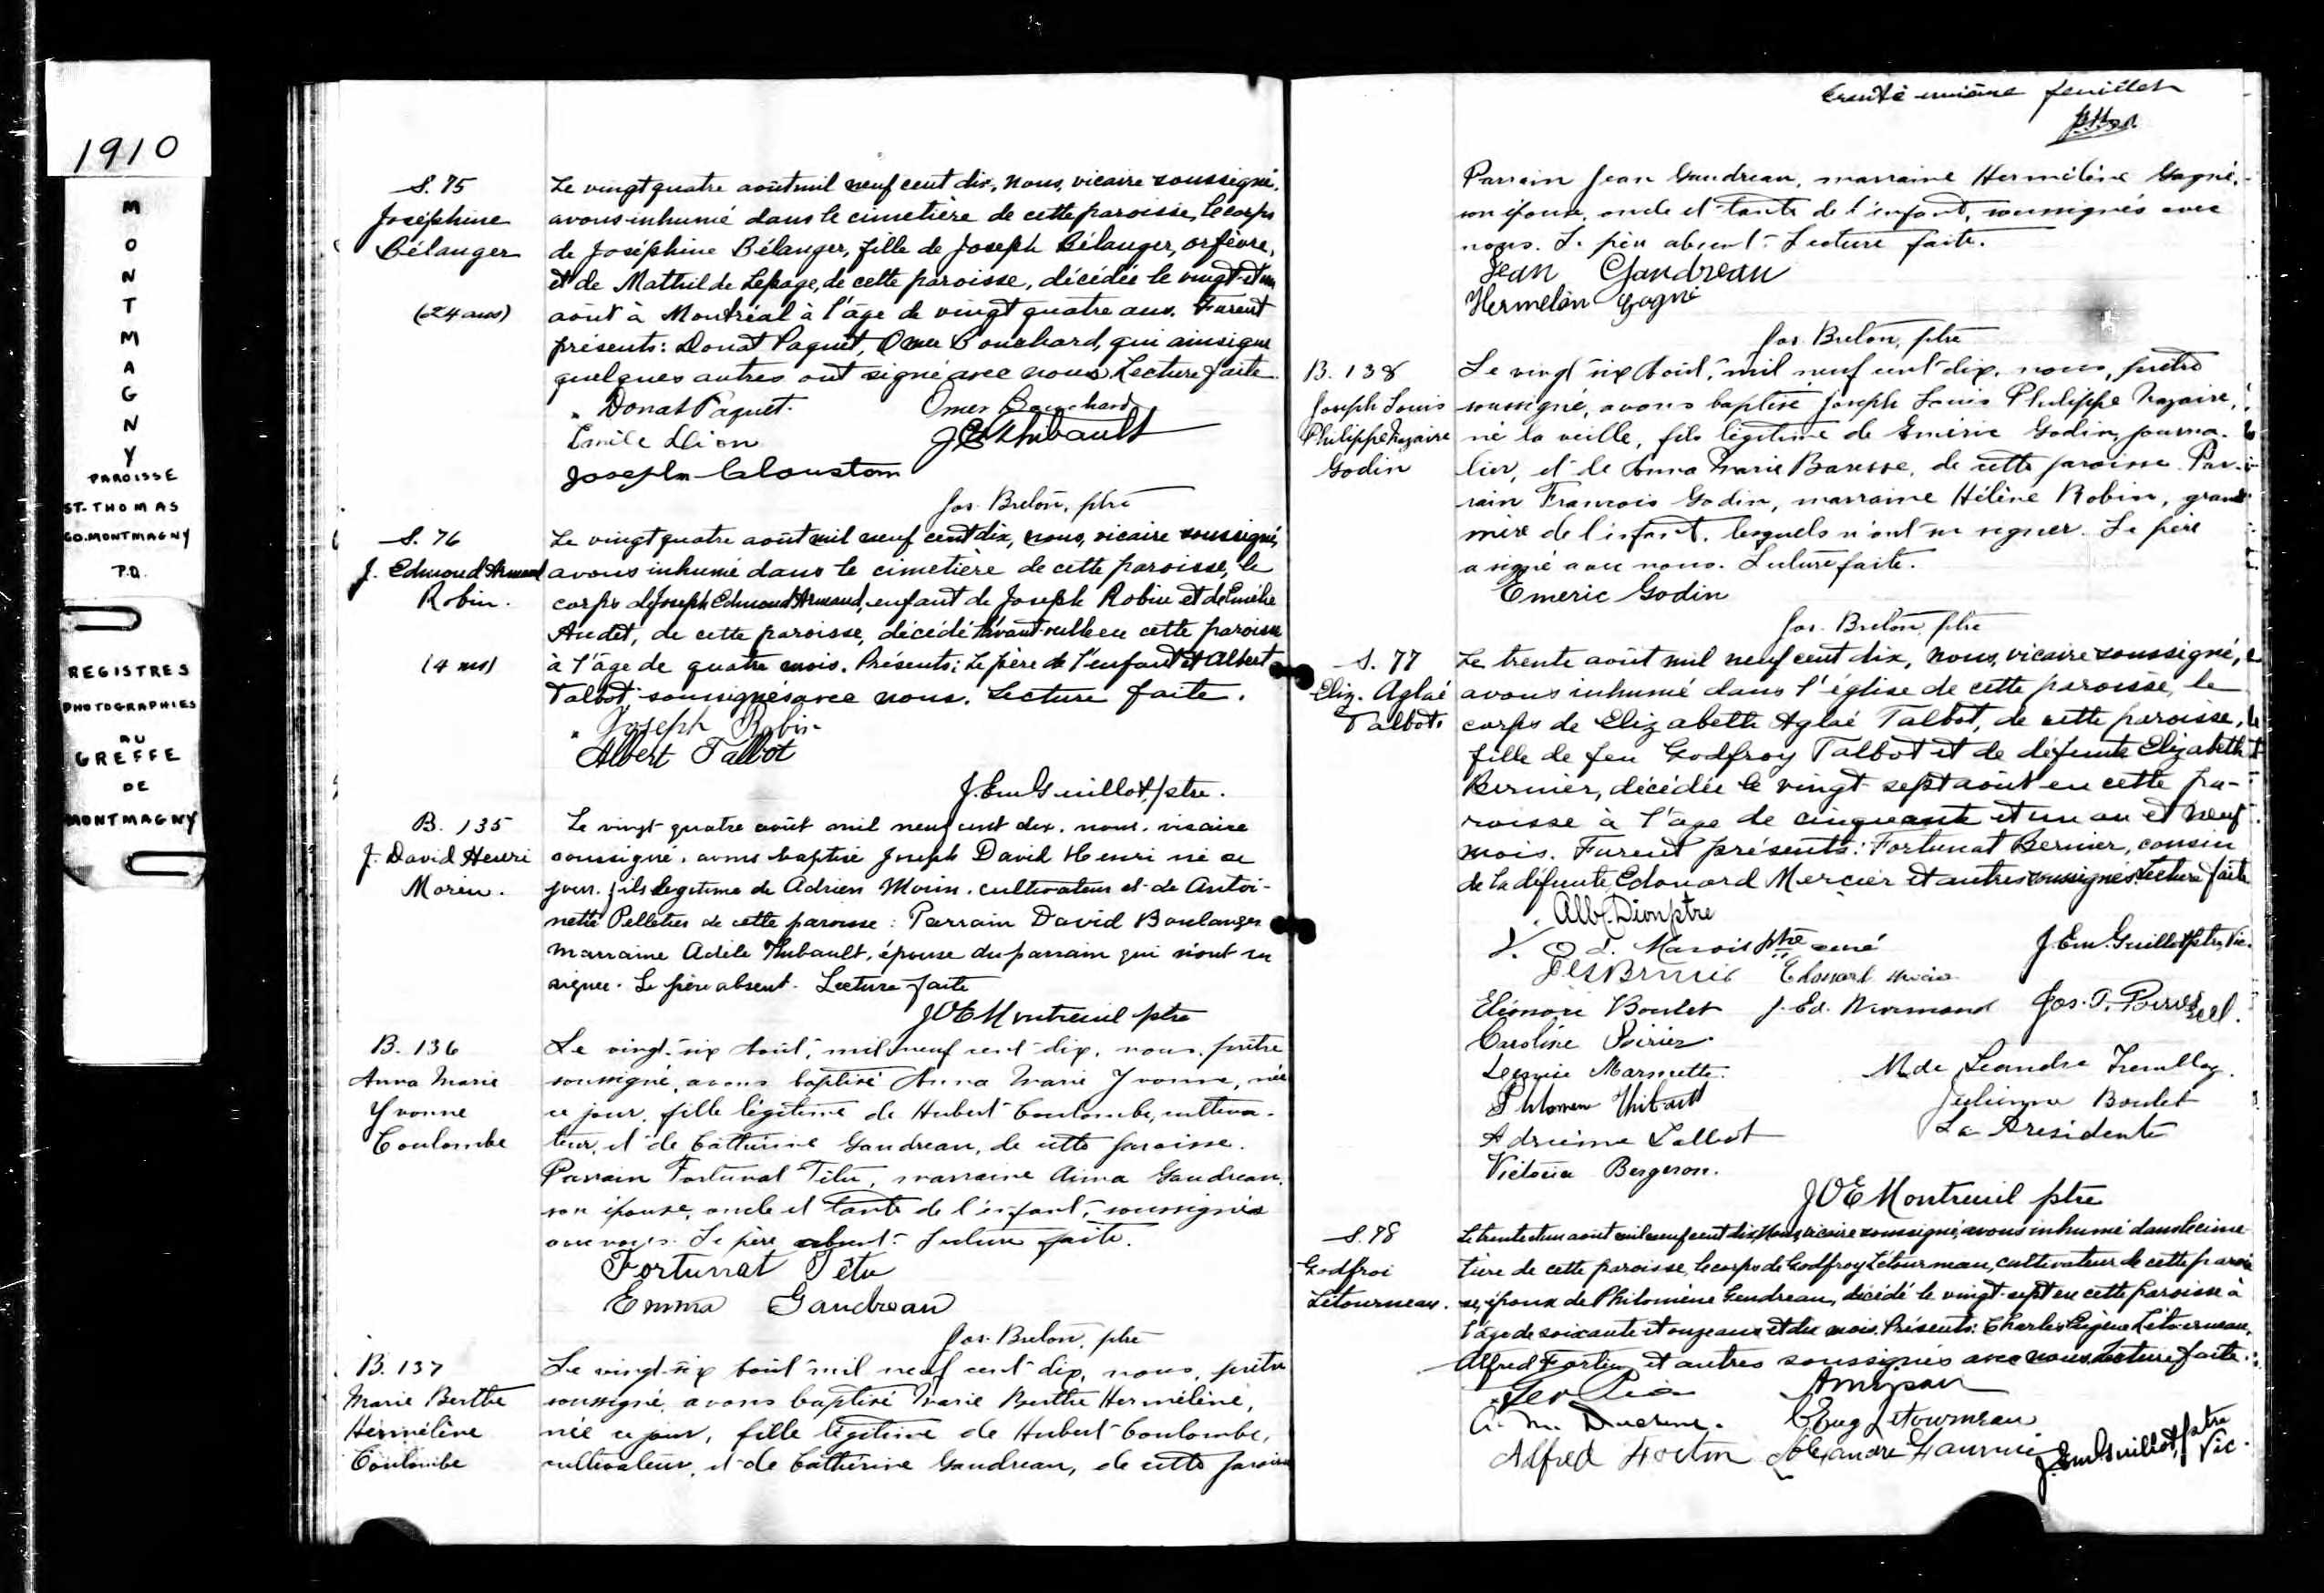 1910
MONTMAGNY
PAROISSE
ST-THOMAS
CO. MONTMAGNY
P.Q.
REGISTRES
PHOTOGRAPHIES
AU
GREFFE
DE
MONTMAGNY
S. 75
Joséphine
Bélanger
(24 ans)
Le vingt quatre août mil neuf cent dix, nous, vicaire soussigné,
avons inhumé dans le cimetière de cette paroisse, le corps
de Joséphine Bélanger, fille de Joseph Bélanger, orfèvre,
et de Mathilde Lepage, de cette paroisse, décédée le vingt-et-un
août à Montréal à l'âge de vingt quatre ans. Furent
présents: Donat Paquet, Omer Bouchard, qui ainsi que
quelques autres ont signé avec nous. Lecture faite.
Donat Paquet. Omer Bouchard
Emile Dion J E Thibault
Joseph Cloustom
Jos. Breton, ptre
S. 76
J. Edmond Armand
Robin.
(4 ms)
Le vingt quatre août mil neuf cent dix, nous, vicaire soussigné,
avons inhumé dans le cimetière de cette paroisse, le
corps de Joseph Edmond Armand, enfant de Joseph Robin et de Emélie
Audet, de cette paroisse, décédé l'avant-veille en cette paroisse
à l'âge de quatre mois. Présents: Le père de l'enfant et Albert
Talbot, soussignés avec nous. Lecture faite.
Joseph Robin
Albert Talbot
J. Em Guillot, ptre.
B. 135
J. David Henri
Morin.
Le vingt-quatre août mil neuf cent dix, nous, vicaire
soussigné, avons baptisé Joseph David Henri né ce
jour, fils légitime de Adrien Morin, cultivateur et de Antoi-
nette Pelletier de cette paroisse: Parrain David Boulanger
marraine Adèle Thibault, épouse du parrain qui n'ont su
signer. Le père absent. Lecture faite
JOE Montreuil ptre
B. 136
Anna Marie
Yvonne
Coulombe
Le vingt-six Août, mil neuf cent dix, nous, prêtre
soussigné, avons baptisé Anna Marie Yvonne, née
ce jour, fille légitime de Hubert Coulombe, cultiva-
teur, et de Catherine Gaudreau, de cette paroisse.
Parrain Fortunat Têtu, marraine Anna Gaudreau,
son épouse, oncle et tante de l'enfant, soussignés
avec nous. Le père absent. Lecture faite.
Fortunat Têtu
Emma Gaudreau
Jos. Breton, ptre
B. 137
Marie Berthe
Herméline
Coulombe
Le vingt-six Août mil neuf cent dix, nous, prêtre
soussigné, avons baptisé Marie Berthe Herméline,
née ce jour, fille légitime de Hubert Coulombe,
cultivateur, et de Catherine Gaudreau, de cette paroisse
trente unième feuillet
Parrain Jean Gaudreau, marraine Herméline Gagné,
son épouse, oncle et tante de l'enfant, soussignés avec
nous. Le père absent. Lecture faite.
Jean Gaudreau
Hermelin Gagné
Jos. Breton, ptre
B. 138
Joseph Louis
Philippe Nazaire
Godin
Le vingt six Août, mil neuf cent dix, nous, prêtre
soussigné, avons baptisé Joseph Louis Philippe Nazaire,
né la veille, fils légitime de Eméric Godin, journa-
lier, et de Anna Marie Baresse, de cette paroisse. Par-
rain François Godin, marraine Hélène Robin, grand
mère de l'enfant, lesquels n'ont su signer. Le père
a signé avec nous. Lecture faite.
Emeric Godin
Jos. Breton, ptre
S. 77
Eliz. Aglaé
Talbot.
Le trente août mil neuf cent dix, nous, vicaire soussigné,
avons inhumé dans l'église de cette paroisse, le
corps de Elizabeth Aglaé Talbot, de cette paroisse,
fille de feu Godfroy Talbot et de défunte Elizabeth
Bernier, décédée le vingt-sept août en cette pa-
roisse à l'âge de cinquante et un an et neuf
mois. Furent présents: Fortunat Bernier, cousin
de la défunte, Edouard Mercier et autres soussignés. Lecture faite
Alb. Dion ptre
Marois ptre curé J. Em. Guillot ptre, Vic.
Eléonore Boulet J. Ed. Normand Jos. T.
Caroline Poirier
Marmette. Mde Léandre Tremblay.
Philomène Thibault Boulet
Adrienne Talbot La Présidente
Victoria Bergeron.
JOE Montreuil ptre
S. 78
Godfroi
Létourneau.
Le trente et un août mil neuf cent dix, Nous, vicaire soussigné, avons inhumé dans le cime
tière de cette paroisse, le corps de Godfroy Létourneau, cultivateur de cette parois
se, époux de Philomène Gendreau, décédé le vingt-sept en cette paroisse à
l'âge de soixante et onze ans et dix mois. Présents: Charles Eugène Létourneau,
Alfred Fortin, et autres soussignés avec nous. Lecture faite.
C Eug Letourneau
Alfred Fortin Alexandre Fournier J. Em Guillot, ptre Vic.